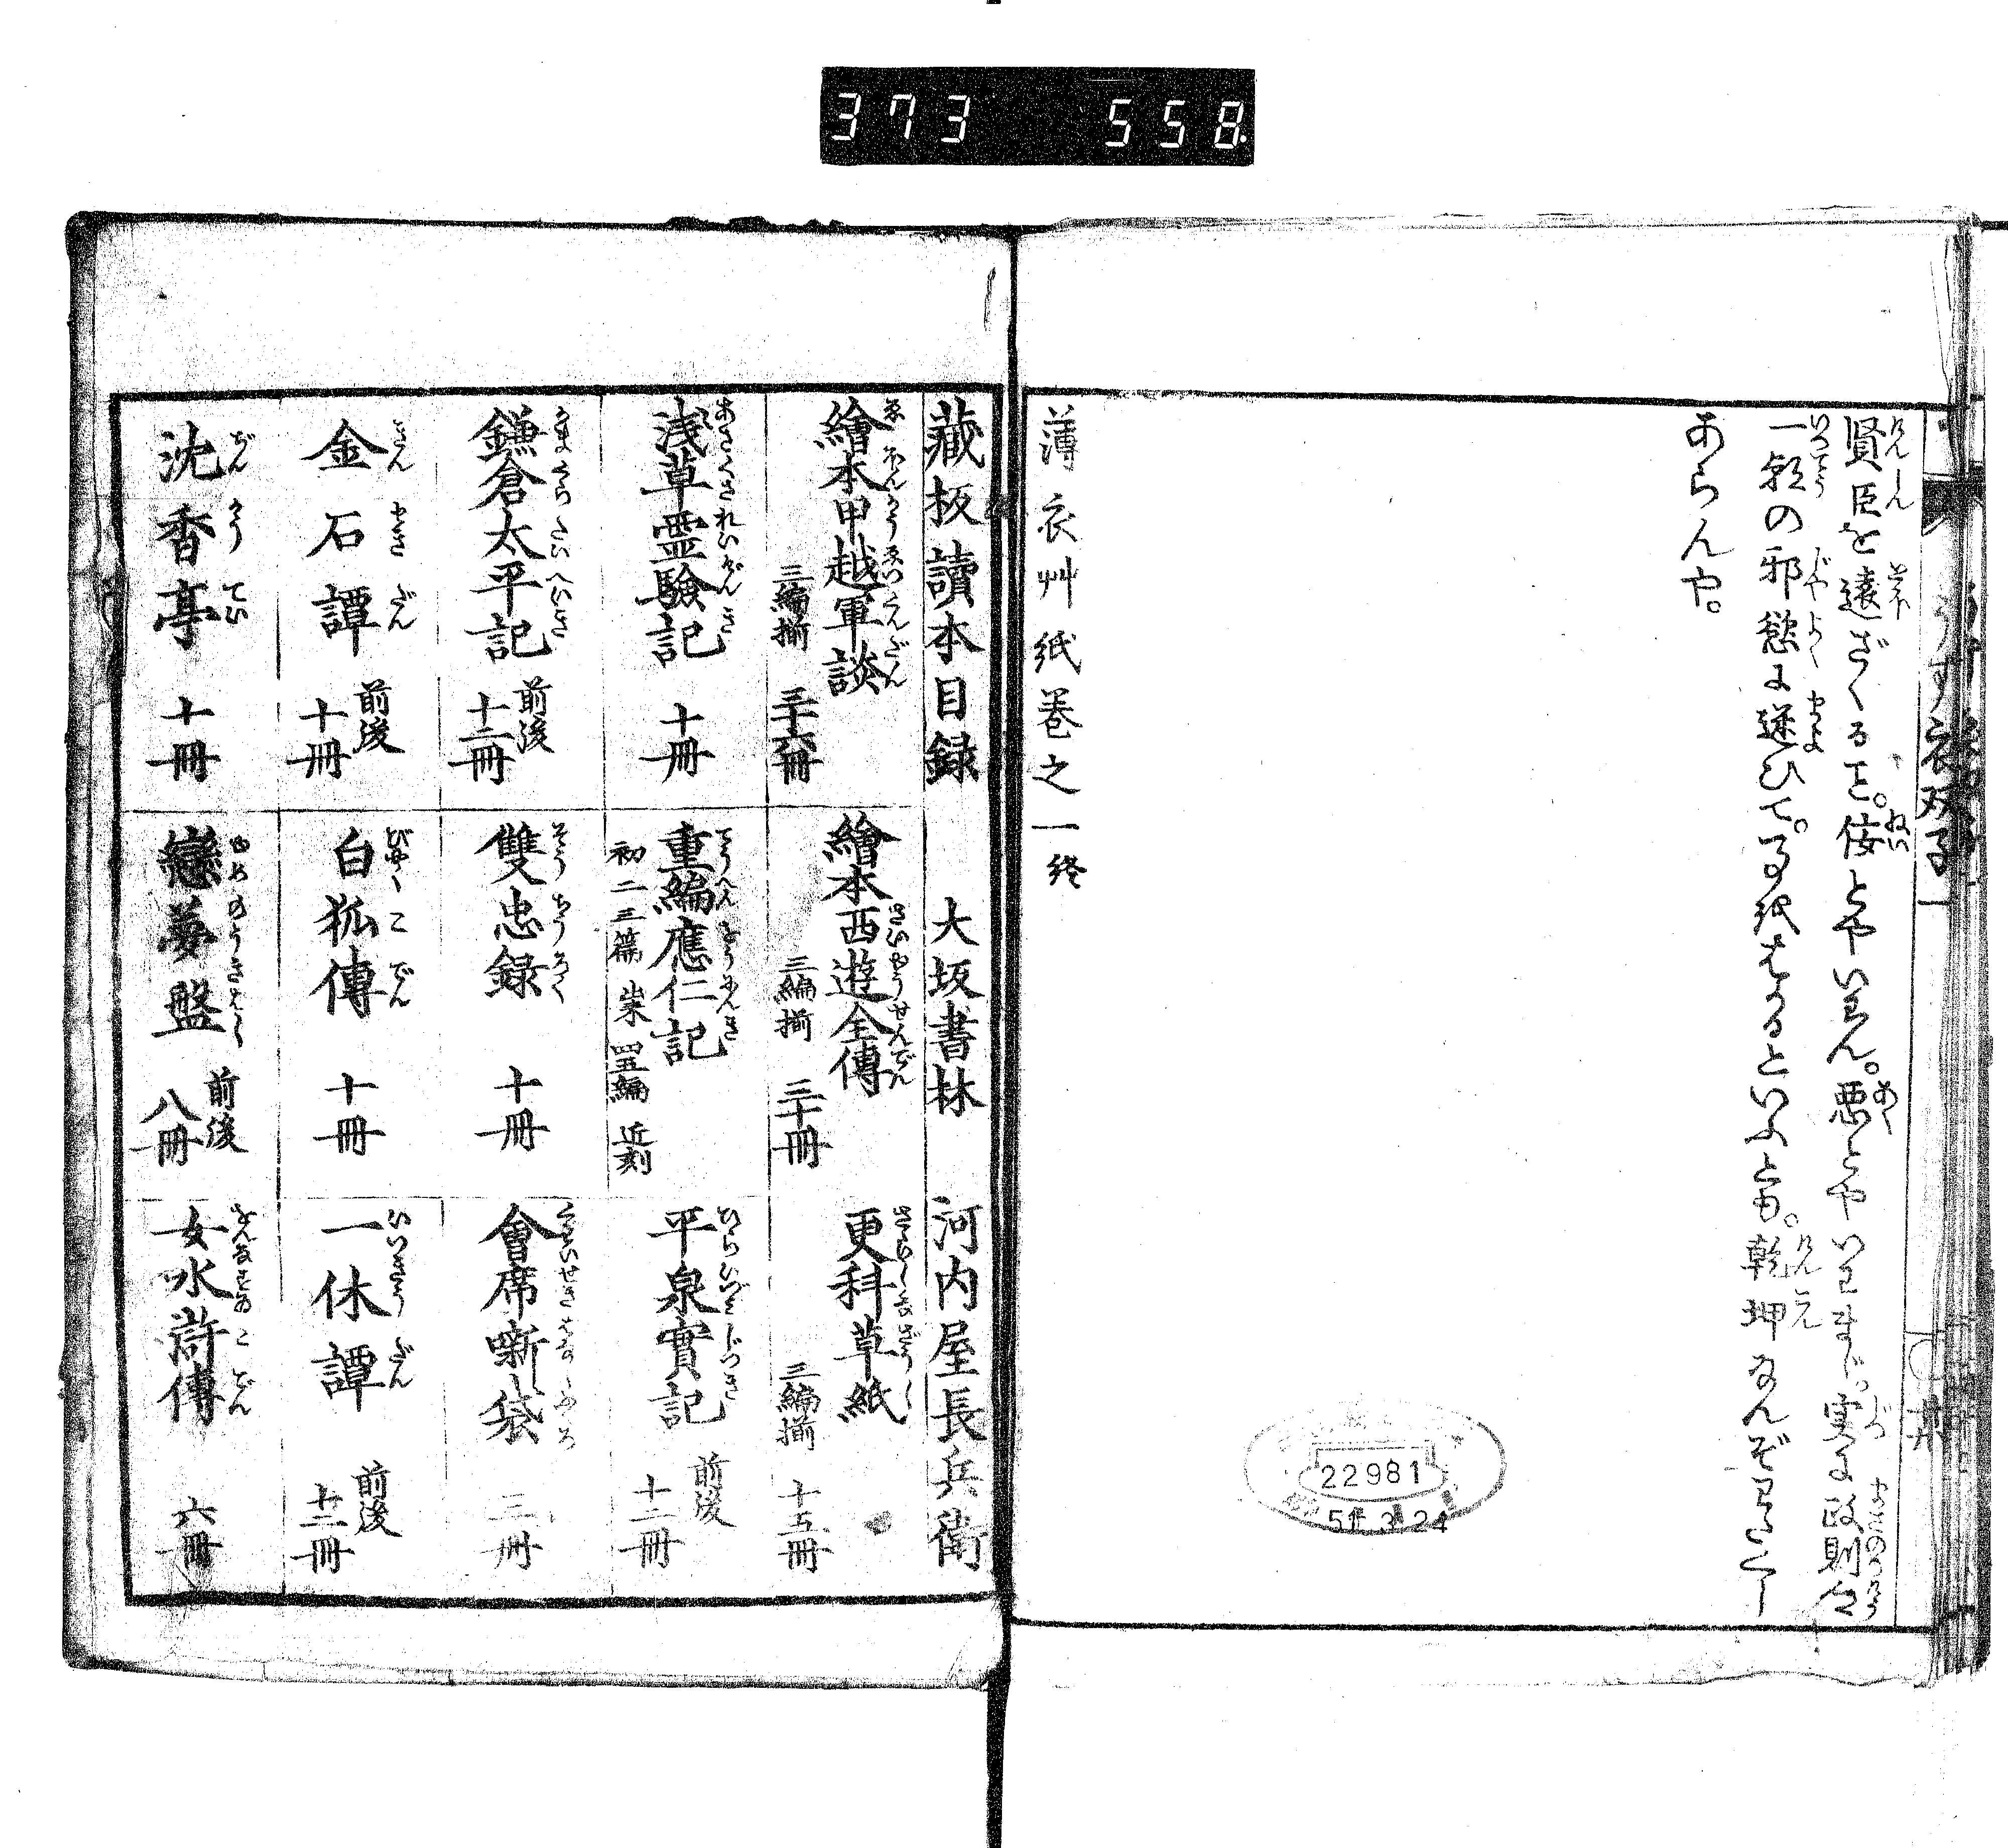 373 558
うす衣双子 一
賢臣を遠ざくるを。侫とやいはん。悪とやいはまし。実に政則君
一朝の邪慾に迷ひて。る紙はるといふとも。乾坤なんぞわたくし
あらんや。
薄衣艸紙巻之一終
22981
51 3 24
藏板讀本目録 大坂書林 河内屋長兵衛
繪本甲越軍談 三編揃 三十六冊
繪本西遊全傳 三編揃 三十冊
更科草紙 三編揃 十五冊
浅草霊驗記 十冊
重編應仁記 初二三篇出来 四五編近刻
平泉實記 前後十二冊
鎌倉太平記 前後十二冊
雙忠録 十冊
會席噺袋 三冊
金石譚 前後十冊
白狐傳 十冊
一休譚 前後十二冊
沈香亭 十冊
戀夢 前後八冊
女水滸傳 六冊